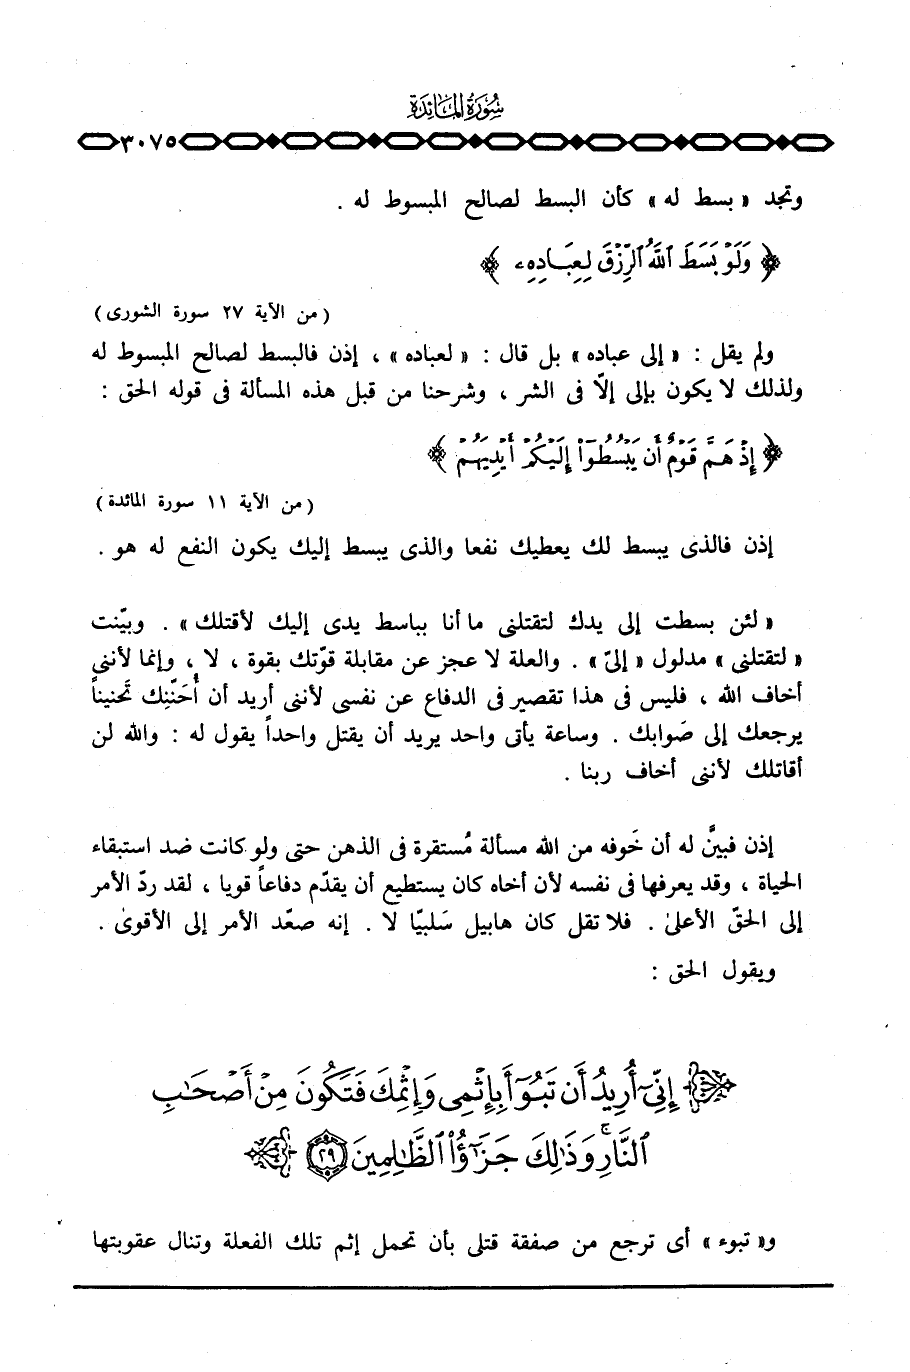 سُورَةُ المَائدَة
٣٠٧٥
وتجد « بسط له » كأن البسط لصالح المبسوط له .
﴿ وَلَوْ بَسَطَ ٱللَّهُ ٱلرِّزْقَ لِعِبَادِهِۦ ﴾
( من الآية ٢٧ سورة الشورى )
ولم يقل : « إلى عباده » بل قال : « لعباده » ، إذن فالبسط لصالح المبسوط له
ولذلك لا يكون بإلى إلّا فى الشر ، وشرحنا من قبل هذه المسألة فى قوله الحق :
﴿ إِذْ هَمَّ قَوْمٌ أَن يَبْسُطُوٓا۟ إِلَيْكُمْ أَيْدِيَهُمْ ﴾
( من الآية ١١ سورة المائدة )
إذن فالذى يبسط لك يعطيك نفعا والذى يبسط إليك يكون النفع له هو .
« لئن بسطت إلى يدك لتقتلنى ما أنا بباسط يدى إليك لأقتلك » . وبيّنت
« لتقتلنى » مدلول « إلىّ » . والعلة لا عجز عن مقابلة قوّتك بقوة ، لا ، وإنما لأننى
أخاف الله ، فليس فى هذا تقصير فى الدفاع عن نفسى لأننى أريد أن أُحَنِّنك تَحنيناً
يرجعك إلى صَوابك . وساعة يأتى واحد يريد أن يقتل واحداً يقول له : والله لن
أقاتلك لأننى أخاف ربنا .
إذن فبينَّ له أن خَوفه من الله مسألة مُستقرة فى الذهن حتى ولو كانت ضد استبقاء
الحياة ، وقد يعرفها فى نفسه لأن أخاه كان يستطيع أن يقدّم دفاعاً قويا ، لقد ردّ الأمر
إلى الحقّ الأعلىٰ . فلا تقل كان هابيل سَلبيّا لا . إنه صعّد الأمر إلى الأقوىٰ .
ويقول الحق :
﴿ إِنِّىٓ أُرِيدُ أَن تَبُوٓأَ بِإِثْمِى وَإِثْمِكَ فَتَكُونَ مِنْ أَصْحَـٰبِ
ٱلنَّارِ ۚ وَذَٰلِكَ جَزَٰٓؤُا۟ ٱلظَّـٰلِمِينَ ۝٢٩ ﴾
و« تبوء » أى ترجع من صفقة قتلى بأن تحمل إثم تلك الفعلة وتنال عقوبتها